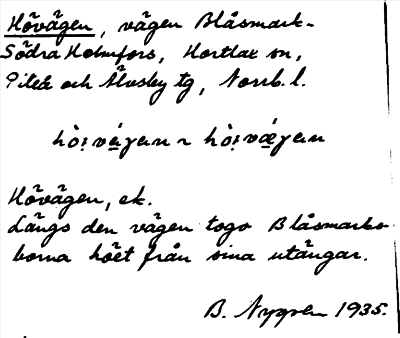 Hövägen, vägen Blåsmark-
Södra Holmfors, Hortlax sn,
Piteå och Älvsby tg, Norrb. l.
hò:vä́gen ~ hò:vǽgen
Hövägen, ek.
Längs den vägen togo Blåsmarks-
borna höet från sina utängar.
B. Nygren 1935.